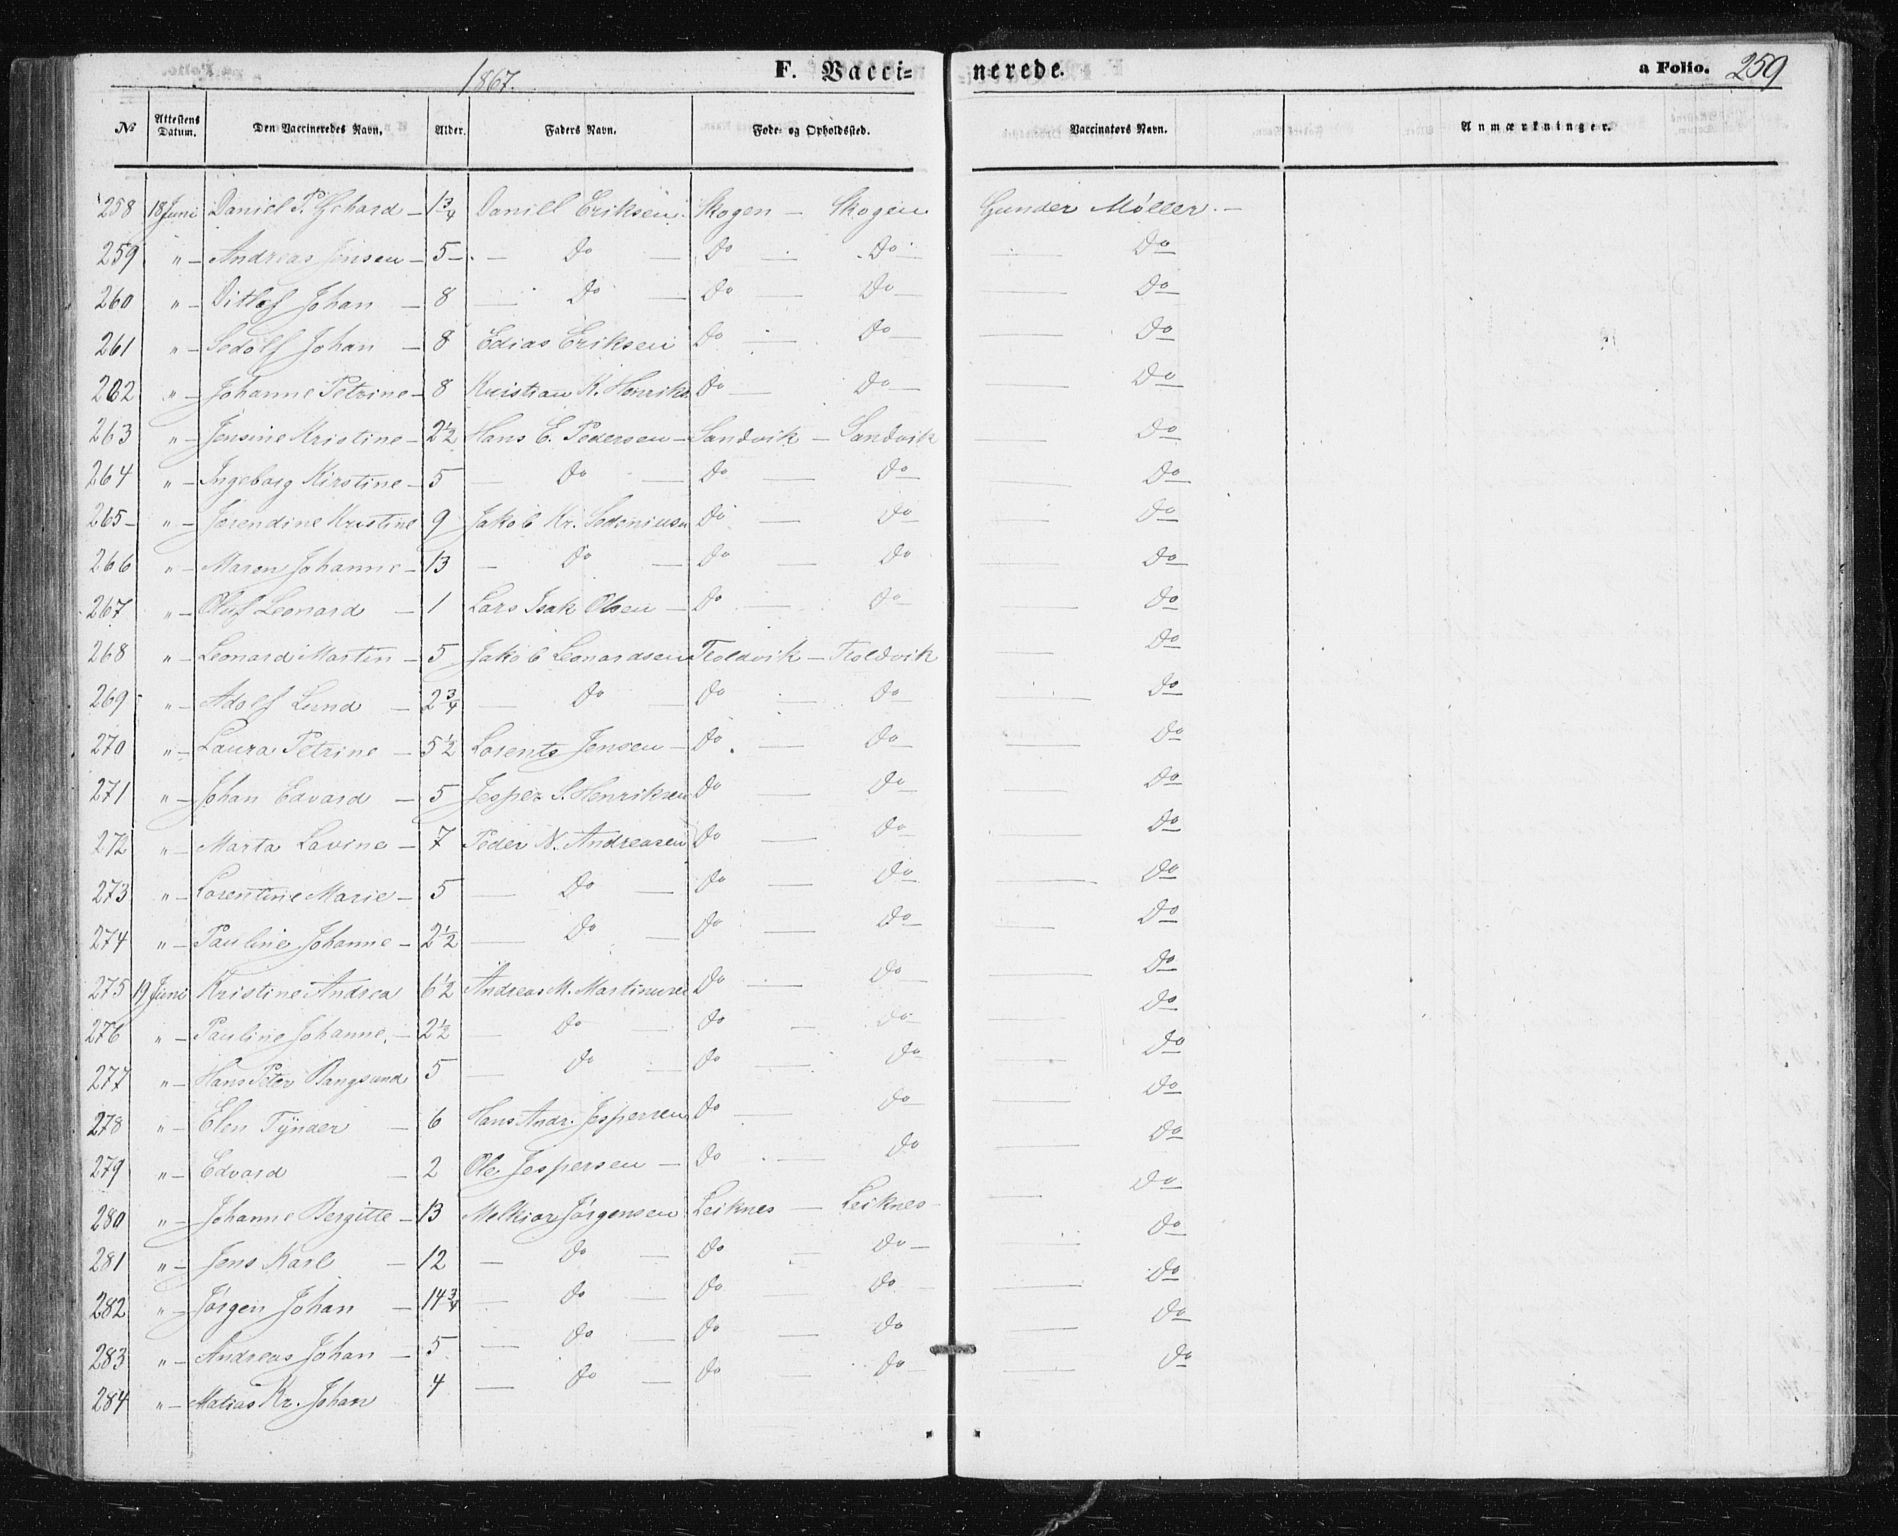 1867.
F. Vacci=
nerede.
a Folio. 259
No Attestens Datum. Den Vaccineredes Navn. Alder. Faders Navn. Føde- og Opholdssted. Vaccinators Navn. Anmærkninger.
258 18 Juni Daniel P. — 1 3/4 Daniel Eriksen. Skogen — Skogen Gunder Møller. —
259 " — Andreas Jensen — 5 — — Do — Do — Do — — Do
260 " — Ditlef Johan — 8 — Do — Do — Do — — Do
261 " — Sedolf Johan — 8 Edias Eriksen Do — Do — — Do
262 " — Johanne Petrine — 8 Kristian K. Henriks Do — Do — — Do
263 " — Jensine Kristine — 2 1/2 Hans E. Pedersen — Sandvik — Sandvik — Do
264 " — Ingeborg Kirstine — 5 — Do — Do — Do — — Do
265 — " — Jørendine Kristine 9 Jakob Kr. Do — Do — Do
266 " — Maren Johanne — 13 — Do — Do — Do — Do
267 " — Oluf Leonard — 1 Lars Isak Olsen — Do — Do — — Do
268 " — Leonard Martin — 5 Jakob Leonardsen Troldvik — Troldvik — Do
269 " — Adolf Lund — 2 3/4 — Do — Do — Do — — Do
270 " — Laura Petrine — 5 1/2 Lorents Jensen — Do — Do — — Do
271 " — Johan Edvard — 5 Jesper S. Henriksen Do — Do — — Do
272 " — Marta Lavine — 7 Peder N. Andreasen Do — Do — — Do
273 " — Lorentine Marie — 5 — Do — Do — Do — — Do
274 " — Pauline Johanne — 2 1/2 — Do — Do — Do — — Do
275 19 Juni Kristine Andrea 6 1/2 Andreas M. Martinusen Do — Do — — Do
276 " — Pauline Johanne. — 2 1/2 — Do — Do — Do — — Do
277 " — Hans Peter Bangsund 5 — Do — Do — Do — Do
278 " — Elen Tÿnder — 6 Hans Andr. Jespersen Do — Do — — Do
279 " — Edvard — 2 Ole Jespersen — Do — Do — Do
280 " — Johanne Bergitte — 13 Melkior Jørgensen Leiknes — Leiknes — — Do
281 " — Jens Karl — 12 — Do — Do — Do — — Do
282 " — Jørgen Johan — 14 3/4 — Do — Do — Do — — Do
283 " — Andreas Johan — 5 — Do — Do — Do — Do
284 " — Matias Kr. Johan 4 — Do — Do — Do — — Do